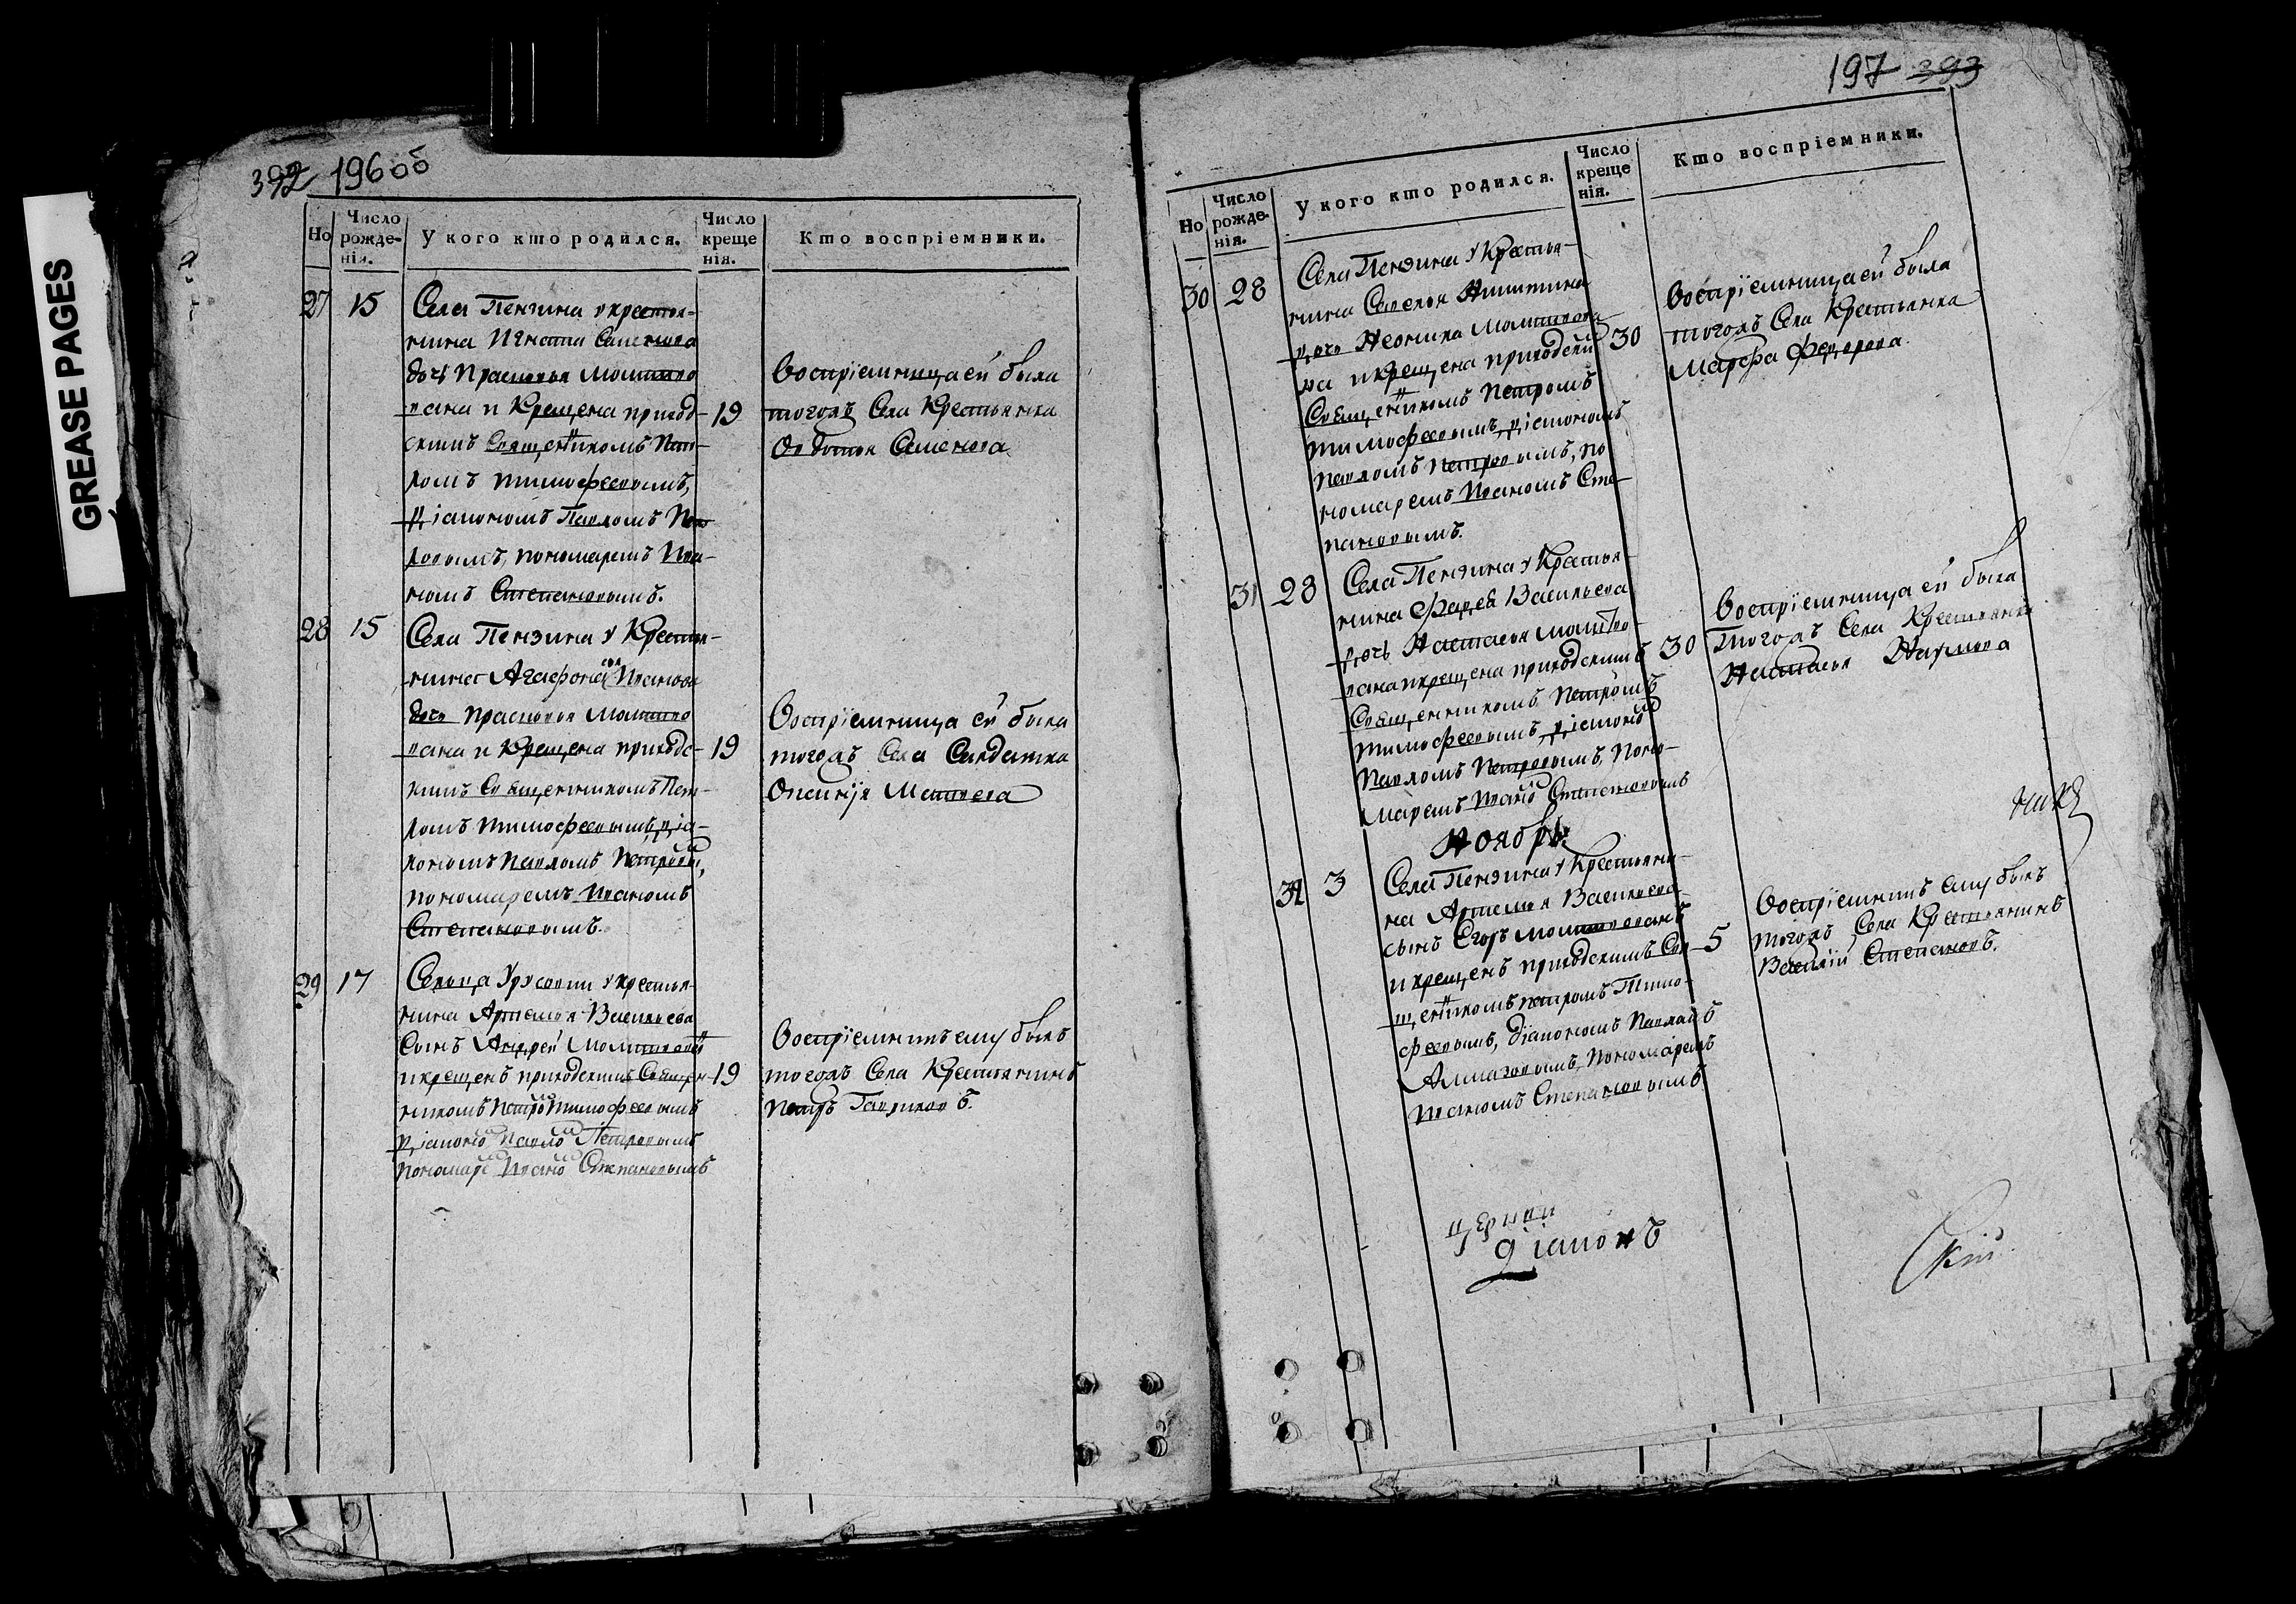 GREASE PAGES
392 196об
Но
Число рожде-нія.
У кого кто родился.
Число креще нія.
Кто воспріемники.
27 15
Села Пензина у крестья-
нина Игната Семенова
дочь Прасковья молитво
вана и крещена приход- 19
скимъ священникомъ Пет-
ромъ Тимофеевымъ,
діакономъ Павломъ Пет
ровымъ, пономаремъ Ива-
номъ Степановымъ.
Воспріемница ей была
тогожъ Села Крестьянка
Авдотья Семенова
28 15
Села Пензина у Крестья-
нина Агафона Иванова
дочь Прасковья Молитво
вана и крещена приходс- 19
кимъ Священникомъ Пет-
ромъ Тимофеевымъ, діа-
кономъ Павломъ Петровы,
пономаремъ Иваномъ
Степановымъ.
Воспріемница ей была
тогожъ Села Салдатка
Матвеева
29 17
Сельца у крестья-
нина Артемья Васильева
Сынъ Андрей Молитвованъ
и крещенъ приходскимъ Священ- 19
никомъ Петро Тимофеевымъ
діаконо Павло Петровымъ
пономаре Ивано Степановымъ
Воспріемникъ ему былъ
тогожъ Села Крестьянинъ
Петръ Гавриловъ.
197 393
Но
Число рожде-нія.
У кого кто родился.
Число креще нія.
Кто воспріемники.
30 28
Села Пензина у Крестья-
нина Савелья Никитина
дочь Неонила Молитвова
на и крещена приходски 30
Священникомъ Петромъ
Тимофеевымъ, діакономъ
Павломъ Петровымъ, по
номаремъ Иваномъ Сте-
пановымъ.
Воспріемница ей была
тогожъ Села Крестьянка
Марфа Федорова.
31 28
Села Пензина у Крестья-
нина Фадея Васильева
дочь Настасья Молитво-
вана и крещена приходскимъ 30
Священникомъ Петромъ
Тимофеевымъ, діаконо
Павломъ Петровымъ, Поно-
маремъ Ивано Степановымъ
Воспріемница ей была
тогожъ Села Крестьянка
Настасья Наумова
Ноябрь
3
Села Пензина у Крестьяни-
на Артемья Васильева
сынъ Егоръ молитвованъ
и крещенъ приходскимъ Свя- 5
щенникомъ Петромъ Тимо-
феевымъ, діакономъ Павломъ
Алмазовымъ, Пономаремъ
Иваномъ Степановымъ
Воспріемникъ ему былъ
тогожъ Села Крестьянинъ
Василій Степановъ.
церкви
Діаконъ
скій